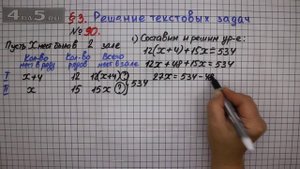 §3. Решение текстовых задач
№ 90.
Пусть X мест было в 2 зале
Кол-во мест в ряду
Кол-во рядов
Всего мест в зале
I x+4 12 12(x+4) ?
II x 15 15x ?
534
1) Составим и решим ур-е:
12(x+4)+15x=534
12x+48+15x=534
27x=534-48